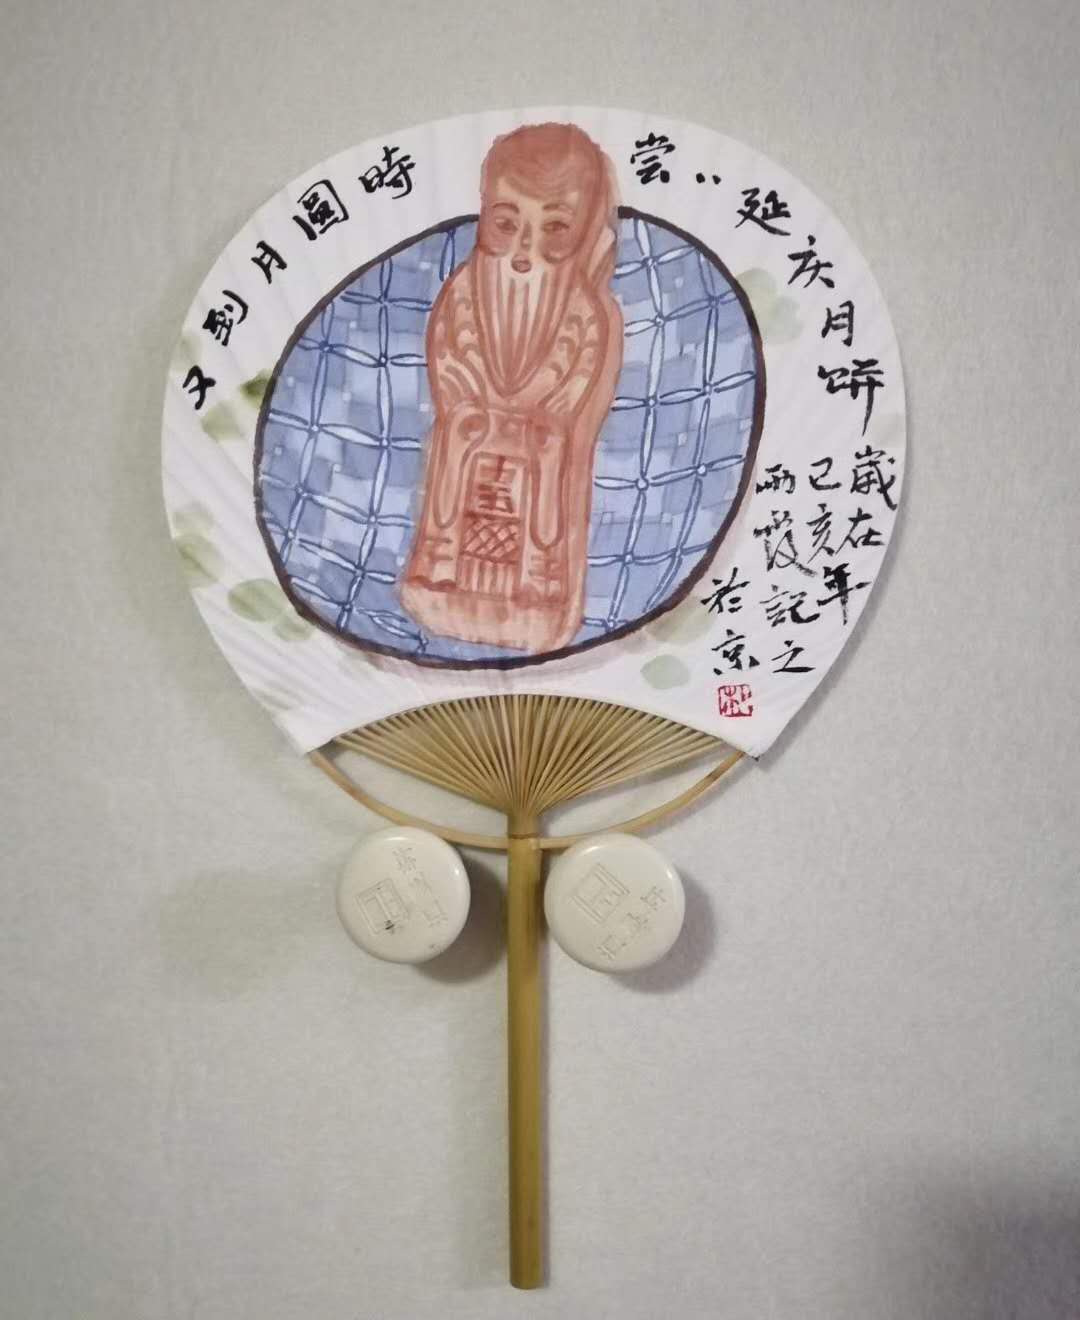 又到月圓時
尝〃延庆月饼
歲在
己亥年
雨霞記之
於京